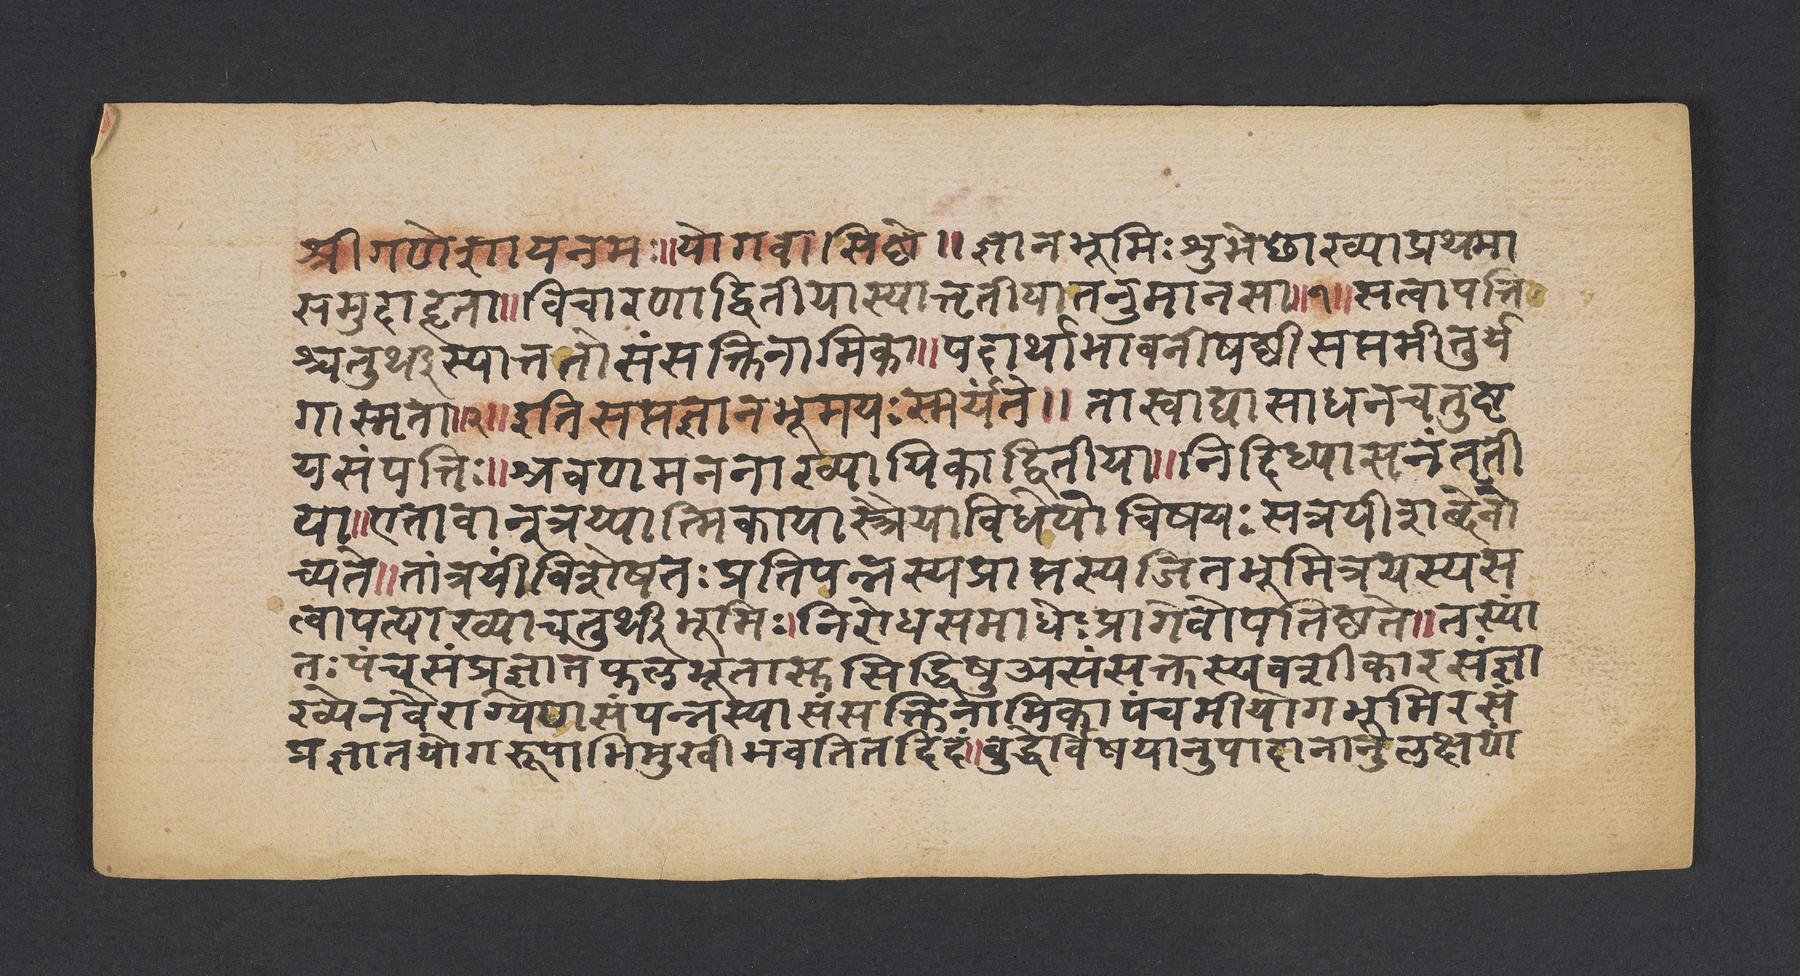 श्रीगणेशायनमः॥योगवासिष्ठे॥ज्ञानभूमिःशुभेछाख्याप्रथमा
समुदाहृता॥विचारणाद्वितीयास्यात्तृतीयातनुमानसा॥१॥सत्वापत्ति
श्चतुर्थीस्यात्ततोसंसक्तिनामिका॥पदार्थाभावनीषष्ठीसप्तमीतुर्य
गास्मृता॥२॥इतिसप्तज्ञानभूमयःस्मर्यंते॥तास्वाद्यासाधनचतुष्ट
यसंपत्तिः॥श्रवणमननाख्यायिकाद्वितीया॥निदिध्यासनंतृती
या॥एतावानूत्रय्यात्मिकायास्त्रैयाविधेयोविषयःसत्रयीशब्देनो
च्यते॥तांत्रयींविशेषतःप्रतिपन्नस्यप्राप्तस्यजितभूमित्रयस्यस
त्वापत्याख्याचतुर्थीभूमिः।निरोधसमाधेःप्रागेवोपतिष्ठते॥तस्यां
तःपंचसंप्रज्ञातफलभूतास्तसिद्धिषुअसंसक्तस्यवशीकारसंज्ञा
ख्येनवैराग्येणसंपन्नस्यासंसक्तिनामिकापंचमीयोगभूमिरसं
प्रज्ञातयोगरूपाभिमुखीभवतितदिदं॥बुद्धेर्विषयानुपादानानुलक्षणा